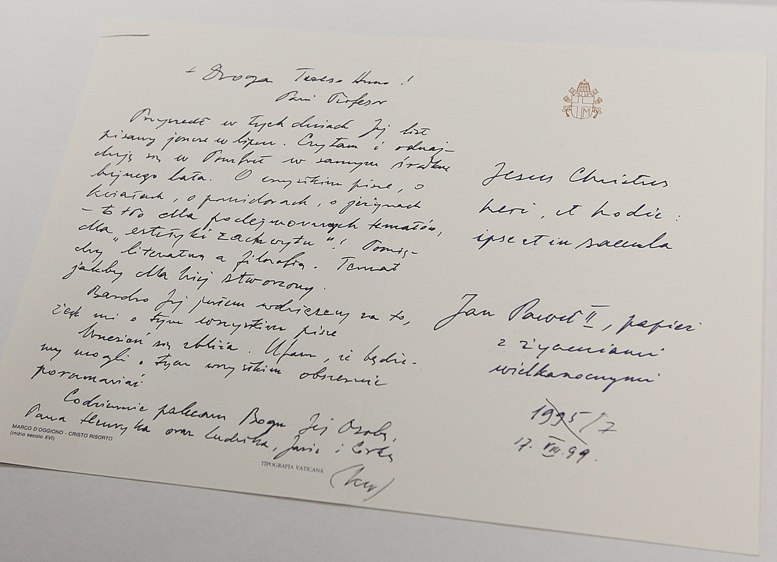 + Droga Tereso Anno!
Pani Profesor
Przyszedł w tych dniach Jej list
pisany jeszcze w lipcu. Czytam i odnaj-
duję się w w samym środku
bujnego lata. O wszystkim pisze, o
kwiatach, o pomidorach, o jeżynach
- to tło dla podejmowanych tematów,
dla „estetyki zachwytu"! Pomię-
dzy literaturą a filozofią. Temat
jakby dla Niej stworzony.
Bardzo Jej jestem wdzięczny za to,
że mi o tym wszystkim pisze
Wrzesień się zbliża. Ufam, że będzie-
my mogli o tym wszystkim obszernie
porozmawiać
Codziennie polecam Bogu Jej Osobę,
Pana Henryka oraz Ludwika, Jasia i
MARCO D'OGGIONO - CRISTO RISORTO
(inizio secolo XVI)
TIPOGRAFIA VATICANA
Jesus Christus
heri, et hodie:
ipse et in saecula
Jan Paweł II, papież
z życzeniami
wielkanocnymi
1995/7
17. VIII. 99.